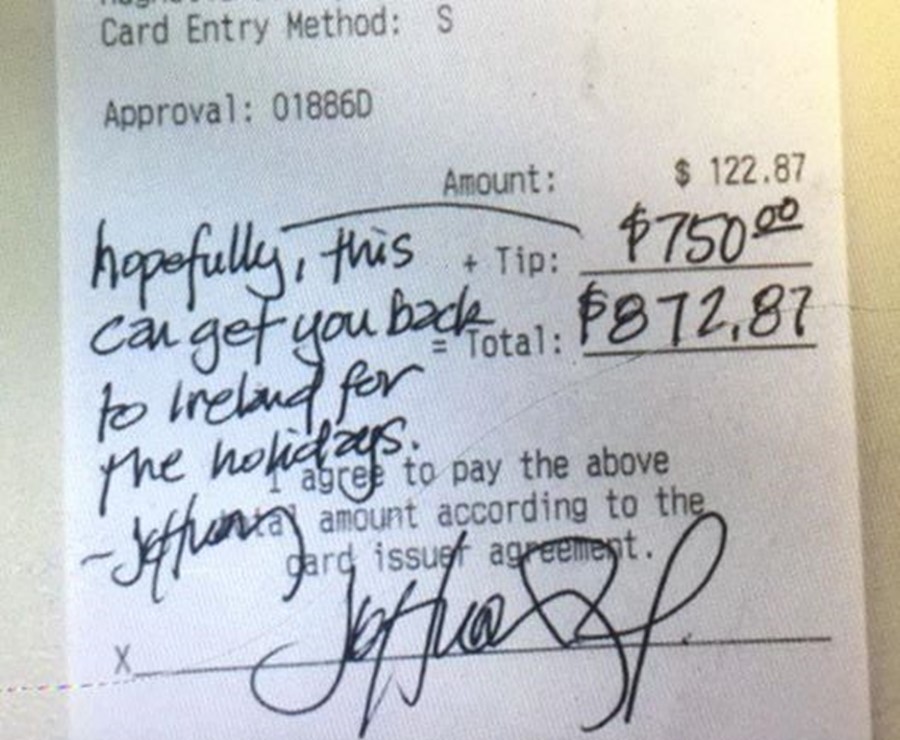 Card Entry Method: S
Approval: 01886D
Amount: $ 122.87
+ Tip: $750.00
= Total: $872.87
hopefully, this
can get you back
to Ireland for
the holidays.
- Jeffrey
I agree to pay the above
total amount according to the
card issuer agreement.
X